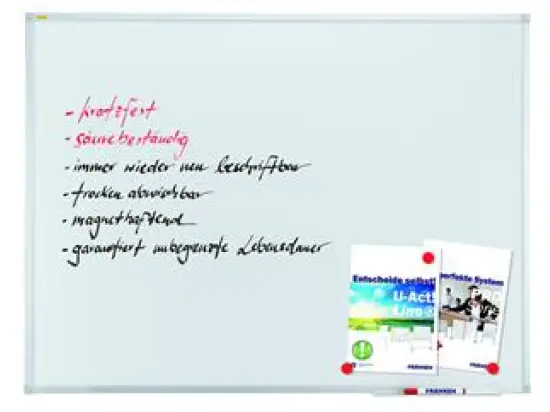 - kratzfest
- säurebeständig
- immer wieder neu beschriftbar
- trocken abwischbar
- magnethaftend
- garantiert unbegrenzte Lebensdauer
Entscheide selbst!
U-Act!
Line
perfekte System
FRANKEN
FRANKEN